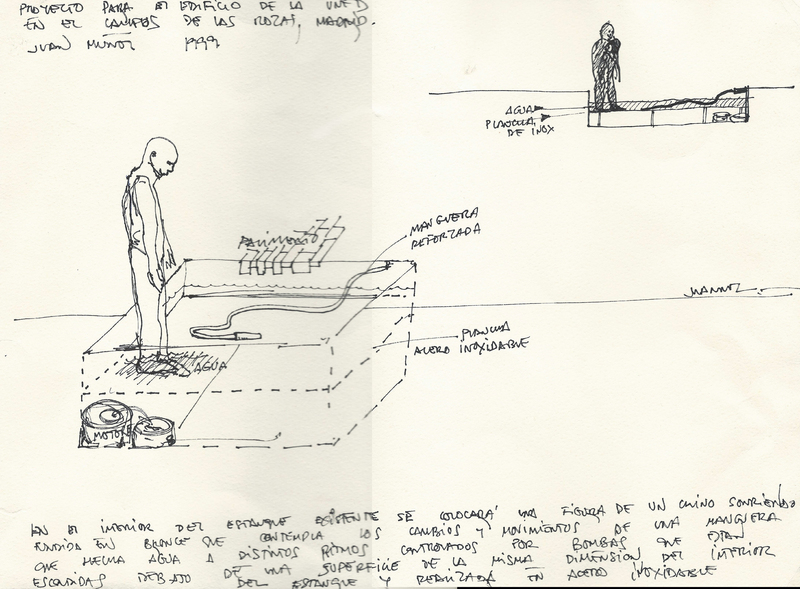 PROYECTO PARA EL EDIFICIO DE LA UNED
EN EL CAMPUS DE LAS ROZAS, MADRID.
JUAN MUÑOZ 1999
AGUA
PLANCHA
DE INOX
MANGUERA
REFORZADA
PAVIMENTO
J MUÑOZ
PLANCHA
ACERO INOXIDABLE
AGUA
MOTOR
EN EL INTERIOR DEL ESTANQUE EXISTENTE SE COLOCARÁ UNA FIGURA DE UN CHINO SONRIENDO
FUNDIDA EN BRONCE QUE CONTEMPLA LOS CAMBIOS Y MOVIMIENTOS DE UNA MANGUERA
QUE ECHA AGUA A DISTINTOS RITMOS CONTROLADOS POR BOMBAS QUE ESTAN
ESCONDIDAS DEBAJO DE UNA SUPERFICIE DE LA MISMA DIMENSION DEL INTERIOR
DEL ESTANQUE Y REALIZADA EN ACERO INOXIDABLE